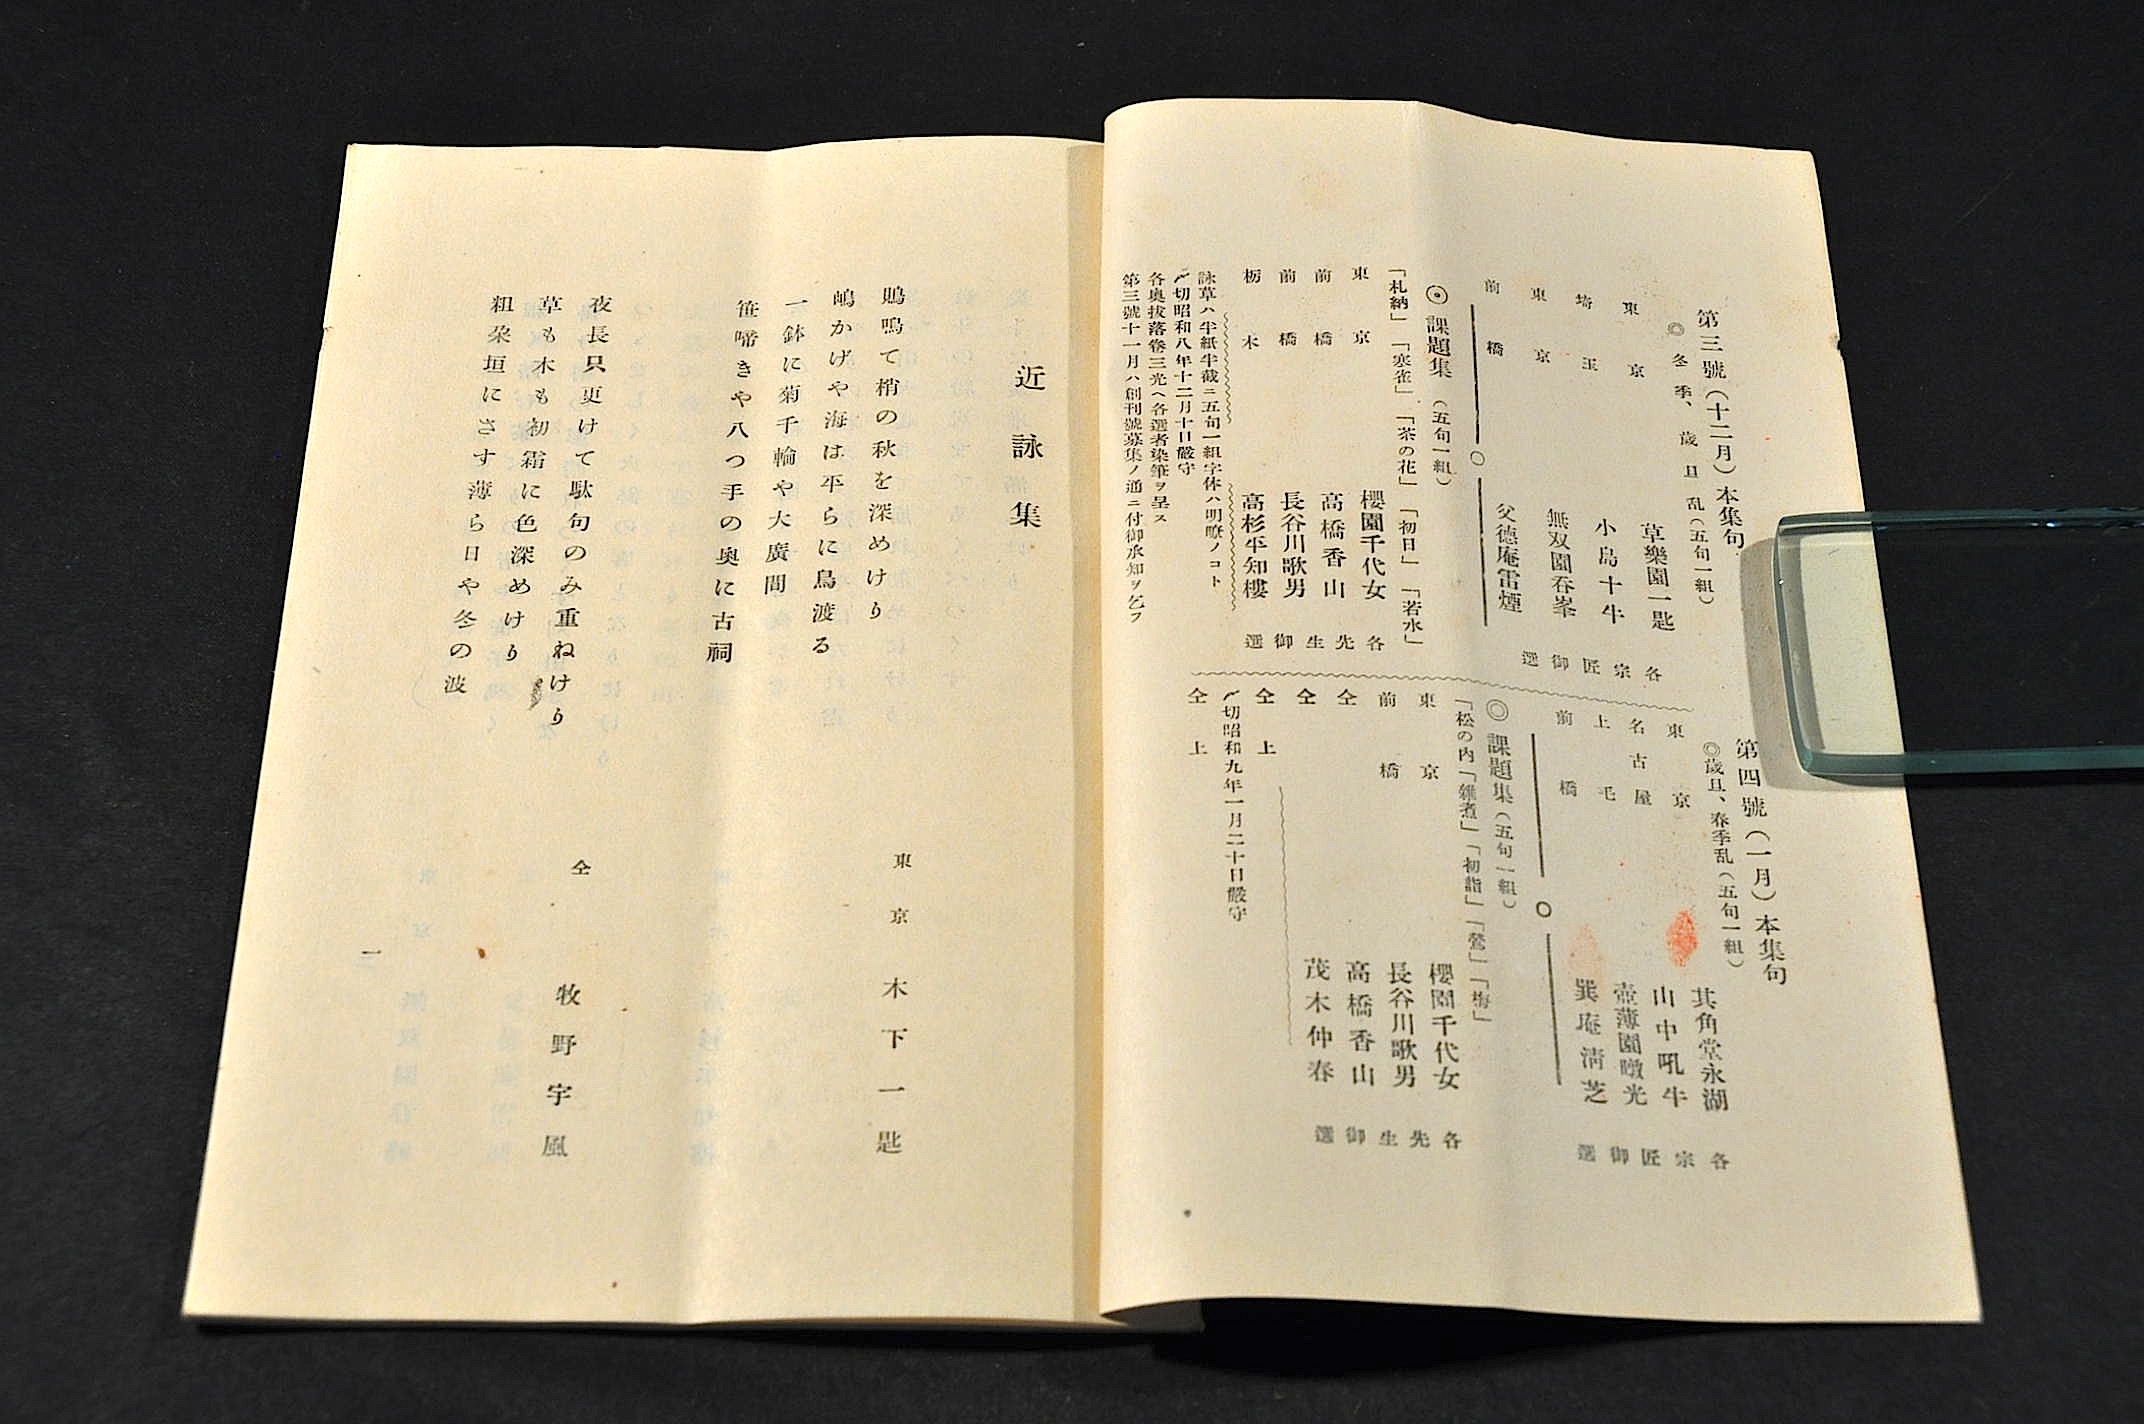 第三號（十二月）本集句
◎冬季、歳旦乱（五句一組）
東京 草樂園一匙
埼玉 小島十牛
東京 無双園呑峯
前橋 父德庵雷煙
各宗匠御選
◉課題集（五句一組）
「札納」「寒雀」「茶の花」「初日」「若水」
東京 櫻園千代女
前橋 高橋香山
前橋 長谷川歌男
栃木 高杉平知樓
各先生御選
詠草ハ半紙半截ニ五句一組字体ハ明瞭ノコト
〆切昭和八年十二月十日嚴守
各奥拔落巻三光ヘ各選者染筆ヲ呈ス
第三號十一月ハ創刊號募集ノ通ニ付御承知ヲ乞フ
第四號（一月）本集句
◎歳旦、春季乱（五句一組）
東京 其角堂永湖
名古屋 山中吼牛
上毛 壺薄園暾光
前橋 巽庵淸芝
各宗匠御選
◎課題集（五句一組）
「松の内「雜煮」「初詣」「鶯」「梅」
東京 櫻園千代女
前橋 長谷川歌男
仝 高橋香山
仝 茂木仲春
各先生御選
仝上
〆切昭和九年一月二十日嚴守
仝上
近詠集
鵙鳴て梢の秋を深めけり
嶋かげや海は平らに鳥渡る
一鉢に菊千輪や大廣間
笹啼きや八つ手の奥に古祠
東京 木下一匙
夜長只更けて駄句のみ重ねけり
草も木も初霜に色深めけり
粗朶垣にさす薄ら日や冬の波
仝 牧野宇風
一